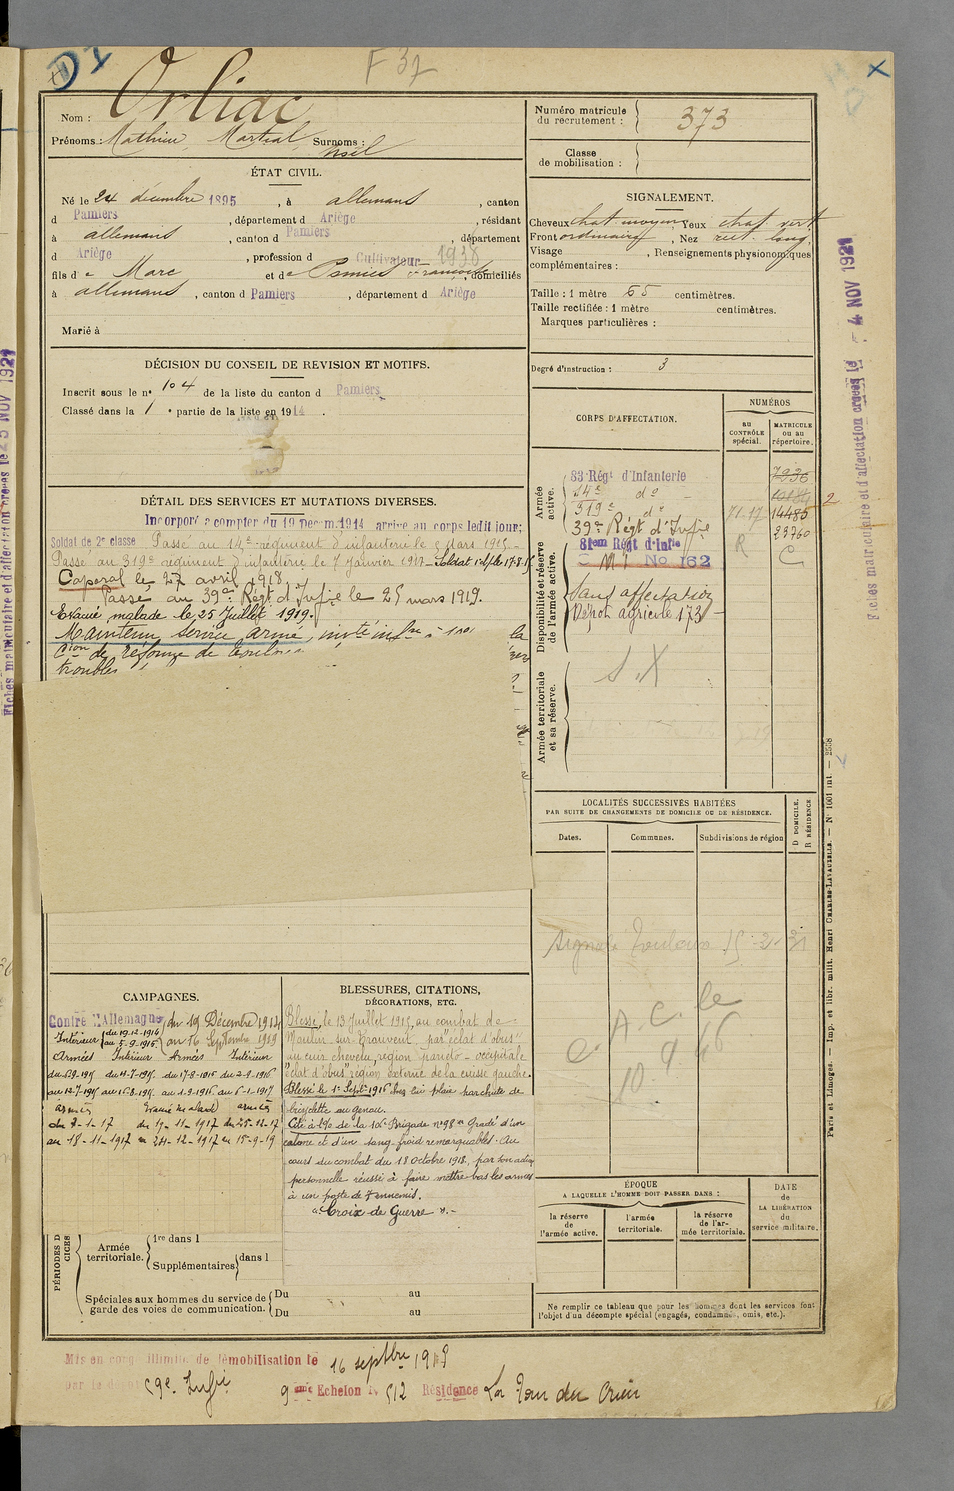 F 37
Orliac
Nom :
Prénoms : Mathieu, Martial, Surnoms :
Numéro matricule du recrutement : 373
Classe de mobilisation :
ÉTAT CIVIL.
Né le 24 décembre 1895, à allemans, canton
d Pamiers, département d Ariège, résidant
à allemans, canton d Pamiers, département
d Ariège, profession d Cultivateur 1938
fils d e Marc et d e Françoise, domiciliés
à allemans, canton d Pamiers, département d Ariège
Marié à
SIGNALEMENT.
Cheveux chat. moyens Yeux chat vert
Front ordinaire, Nez rect. long
Visage, Renseignements physionomiques
complémentaires :
Taille : 1 mètre 65 centimètres.
Taille rectifiée : 1 mètre centimètres.
Marques particulières :
Degré d'instruction : 3
DÉCISION DU CONSEIL DE REVISION ET MOTIFS.
Inscrit sous le n° 104 de la liste du canton d Pamiers
Classé dans la 1° partie de la liste en 1914.
DÉTAIL DES SERVICES ET MUTATIONS DIVERSES.
Incorporé à compter du 19 Décem.1914 arrivé au corps ledit jour;
Soldat de 2e classe Passé au 14e régiment d'infanterie le 8 Mars 1915
Passé au 319e régiment d'infanterie le 7 Janvier 1917
Caporal le 27 avril 1918
Passé au 39e Régt d'Infie le 25 mars 1919.
Evacué malade le 25 Juillet 1919.
Maintenu service armé,
Con de réforme de
troubles
CORPS D'AFFECTATION.
NUMÉROS
au CONTRÔLE spécial.
MATRICULE ou au répertoire.
Armée active.
83 Régt d'Infanterie 7936
14e do 10184
319e do 71.17 14485
39e Régt d'Infie 23760
Disponibilité et réserve de l'armée active.
81em Régt d'Infie R C
No 162
Sans affectation
Dépôt agricole 173
Armée territoriale et sa réserve.
S.X
LOCALITÉS SUCCESSIVES HABITÉES
PAR SUITE DE CHANGEMENTS DE DOMICILE OU DE RÉSIDENCE.
Dates.
Communes.
Subdivisions de région
D DOMICILE.
R RÉSIDENCE
C.A.C. le
10.9.46
CAMPAGNES.
Contre l'Allemagne du 19 Décembre 1914
au 16 Septembre 1919
Intérieur du 19.12.1914
au 5.9.1915
Armées Intérieur Armées Intérieur
armées Evacué malade armées
du 7-1-17 du 19-11-1917 du 25-12-17
au 18-11-1917 au 24-12-1917 au 15-9-19
BLESSURES, CITATIONS,
DÉCORATIONS, ETC.
Blessé, le 13 Juillet 1915, au combat de
Moulin sur Trouvent, par éclat d'obus
au cuir chevelu, région pariéto-occipitale
éclat d'obus région externe de la cuisse gauche.
Blessé le 1er Septbre 1916 par chute de
bicyclette au genou.
Cité à l'o de la Brigade n° 98 "Gradé d'un
calme et d'un sang-froid remarquables. Au
cours du combat du 18 Octobre 1918, par son action
personnelle réussi à faire mettre bas les armes
à un poste de 7 ennemis.
"Croix de Guerre".-
PÉRIODES D
CICES
Armée territoriale.
1re dans l
Supplémentaires dans l
Spéciales aux hommes du service de
garde des voies de communication.
Du au
Du au
ÉPOQUE
A LAQUELLE L'HOMME DOIT PASSER DANS :
la réserve de l'armée active.
l'armée territoriale.
la réserve de l'armée territoriale.
DATE de LA LIBÉRATION du service militaire.
Ne remplir ce tableau que pour les hommes dont les services font
l'objet d'un décompte spécial (engagés, condamnés, omis, etc.).
Mis en congé illimité de démobilisation le 16 septbre 1919
par le dépôt 59e Infie 9ème Echelon N. 512 Résidence La Tour du Crieu
Fiches matriculaire et d'affectation créées le 4 NOV 1921
Fiches matriculaire et d'affectation créées le 25 NOV 1921
Paris et Limoges. — Imp. et libr. milit. Henri CHARLES-LAVAUZELLE. — N° 1601 int. — 2558